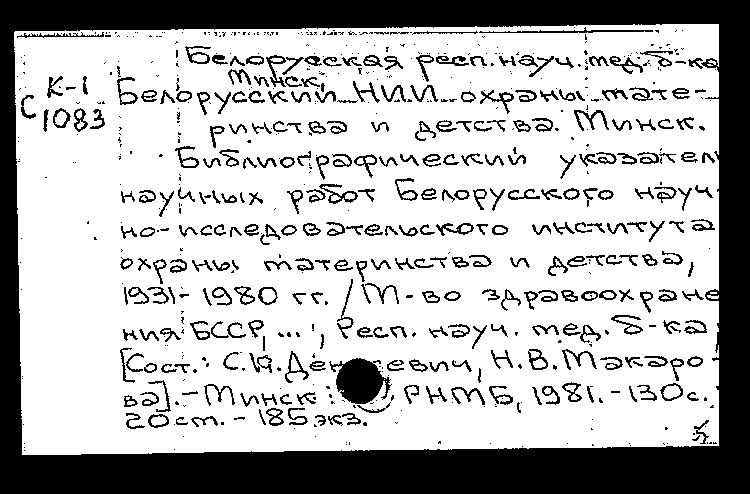 Белорусская респ. науч. мед. б-ка
Минск,
К-1
С 1083
Белорусский НИИ охраны мате-
ринства и детства. Минск.
Библиографический указател
научных работ Белорусского науч-
но-исследовательского института
охраны материнства и детства,
1931-1980 гг. / М-во здравоохране
ния БССР, ... , Респ. науч. мед. б-ка;
[Сост.: С. Н.В. Макаро-
ва]. - Минск: РНМБ, 1981. - 130 с.;
20 см. - 185 экз.